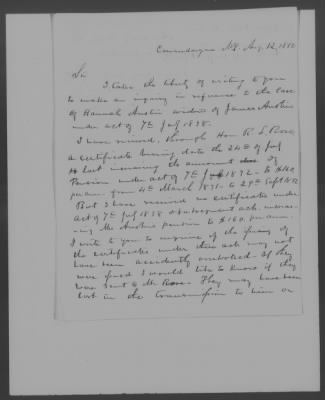 Canandaigua N.Y. Aug. 12, 1852
Sir
I take the liberty of writing to you
to make an inquiry in reference to the case
of Hannah Austin widow of James Austin
under act of 7th July 1838.
I have received, through Hon R. L. Rose,
a certificate bearing date the 24th of July
last increasing the amount of
Pension under act of 7th
per ann. from 4th March
But I have received no certificates under
act of 7th July 1838 & subsequent acts increas-
-ing Mr Austins pension to $160. per ann.
I write to you to inquire if the
the certificates under these acts may not
have been accidently overlooked - If they
were issued I would like to know if they
was sent to Mr Rose. They may have been
lost in the transmission to him or